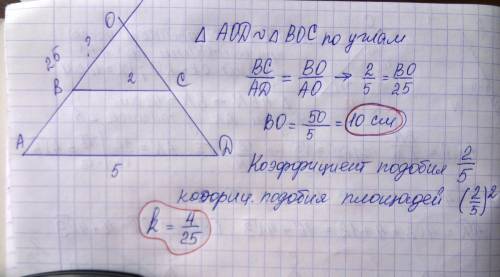 O
25
?
B
2
C
A
D
5
△ AOD ~ △ BOC по углам
BC/AD = BO/AO → 2/5 = BO/25
BO = 50/5 = 10 см
Коэффициент подобия 2/5
коэфиц. подобия площадей (2/5)²
k = 4/25